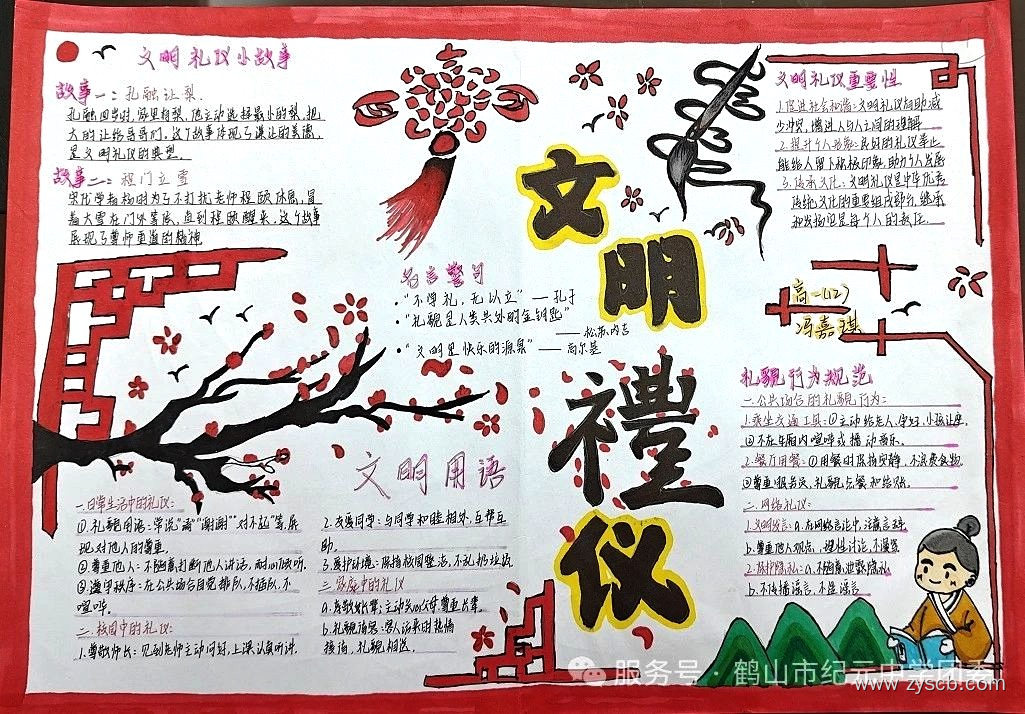 文明礼仪小故事
故事一：孔融让梨.
孔融四岁时,家里有梨,他主动选择最小的梨,把
大的让给哥哥们,这个故事体现了谦让的美德,
是文明礼仪的典型.
故事二：程门立雪
宋代学者杨时为了不打扰老师程颐休息,冒
着大雪在门外等候,直到程颐醒来,这个故事
展现了尊师重道的精神
文
明
禮
仪
文明礼仪重要性
1.促进社会和谐:文明礼仪有助减
少冲突,增进人与人之间的理解
2.提升个人形象:良好的礼仪举止
能给人留下积极印象,助力个人发展
3.传承文化:文明礼仪是中华优秀
传统文化的重要组成部分,继承
和发扬也是每个人的责任.
名言警句
•“不学礼，无以立” — 孔子
•“礼貌是人类共处的金钥匙”
— 松苏内吉
•“文明是快乐的源泉” — 高尔基
高一(12)
冯嘉琪
文明用语
一.日常生活中的礼仪:
①.礼貌用语:常说“请”“谢谢”“对不起”等,展
现对他人的尊重.
②尊重他人:不随意打断他人讲话,耐心倾听.
③遵守秩序:在公共场合自觉排队,不插队,不
喧哗.
二.校园中的礼仪:
1.尊敬师长:见到老师主动问好,上课认真听讲.
2.友爱同学:与同学和睦相处,互帮互
助.
3.爱护环境:保持校园整洁,不乱扔垃圾
三.家庭中的礼仪
a.孝敬长辈:主动关心父母尊重长辈.
b.礼貌待客:客人访来时热情
接待,礼貌相送.
礼貌行为规范
一.公共场合的礼貌行为:
1.乘坐交通工具:①主动给老人,孕妇,小孩让座.
②不在车厢内喧哗或播动音乐.
2.餐厅用餐:①用餐时保持安静,不浪费食物.
②尊重服务员,礼貌点餐和结账.
二.网络礼仪:
1.文明发言:a.在网络言论中,注意言辞.
b.尊重他人观点,理性讨论,不谩骂
2.保护隐私:a.不随意泄露隐私
b.不传播谣言,不造谣言
服务号 · 鹤山市纪元中学团委
www.zyscb.com